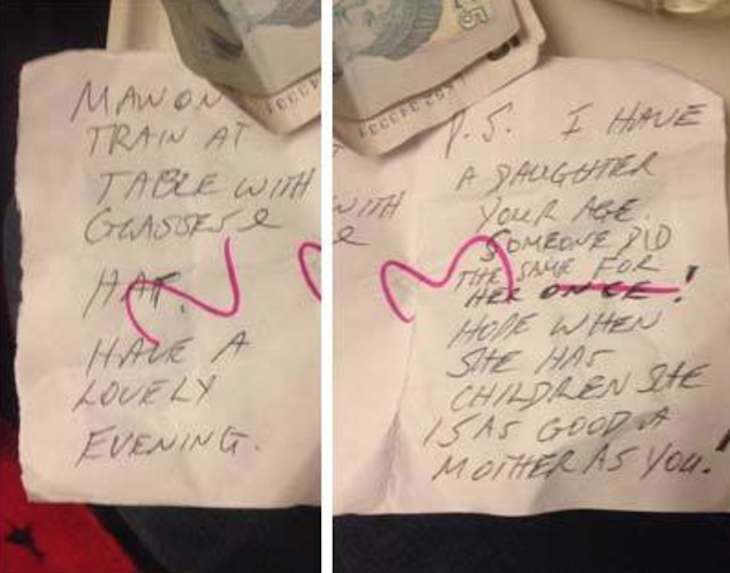 MAN ON
TRAIN AT
TABLE WITH
GLASSES &
HAT.
HAVE A
LOVELY
EVENING.
WITH
&
£5
P.S. I HAVE
A DAUGHTER
YOUR AGE.
SOMEONE DID
THE SAME FOR
HER ONCE!
HOPE WHEN
SHE HAS
CHILDREN SHE
IS AS GOOD A
MOTHER AS YOU!